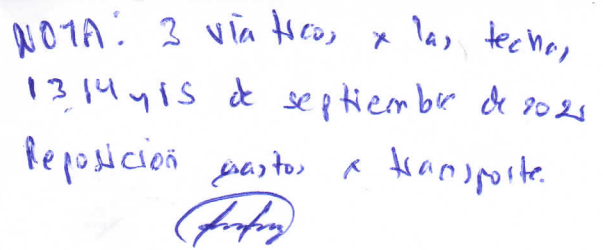 NOTA: 3 viáticos x las fechas
13, 14 y 15 de septiembre de 2021
Reposición gastos x transporte.